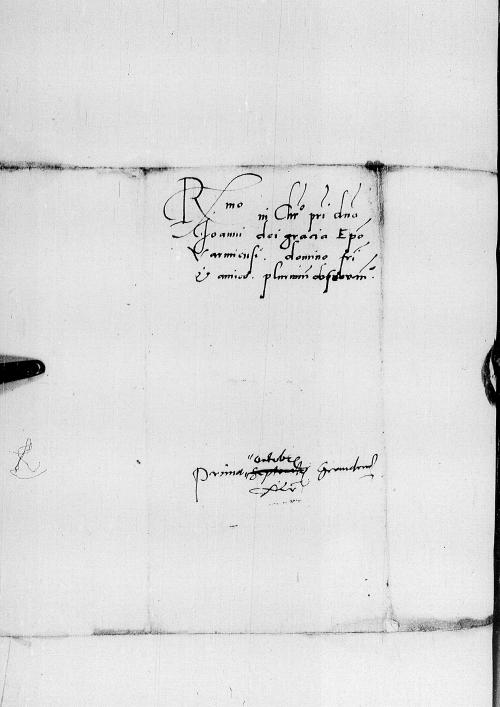 Rmo in Chro pri dno
Joanni dei gracia Epo
Varmiensi. domino fri
et amico. plurimum observan.
octobr
Prima Septembr Graudencz